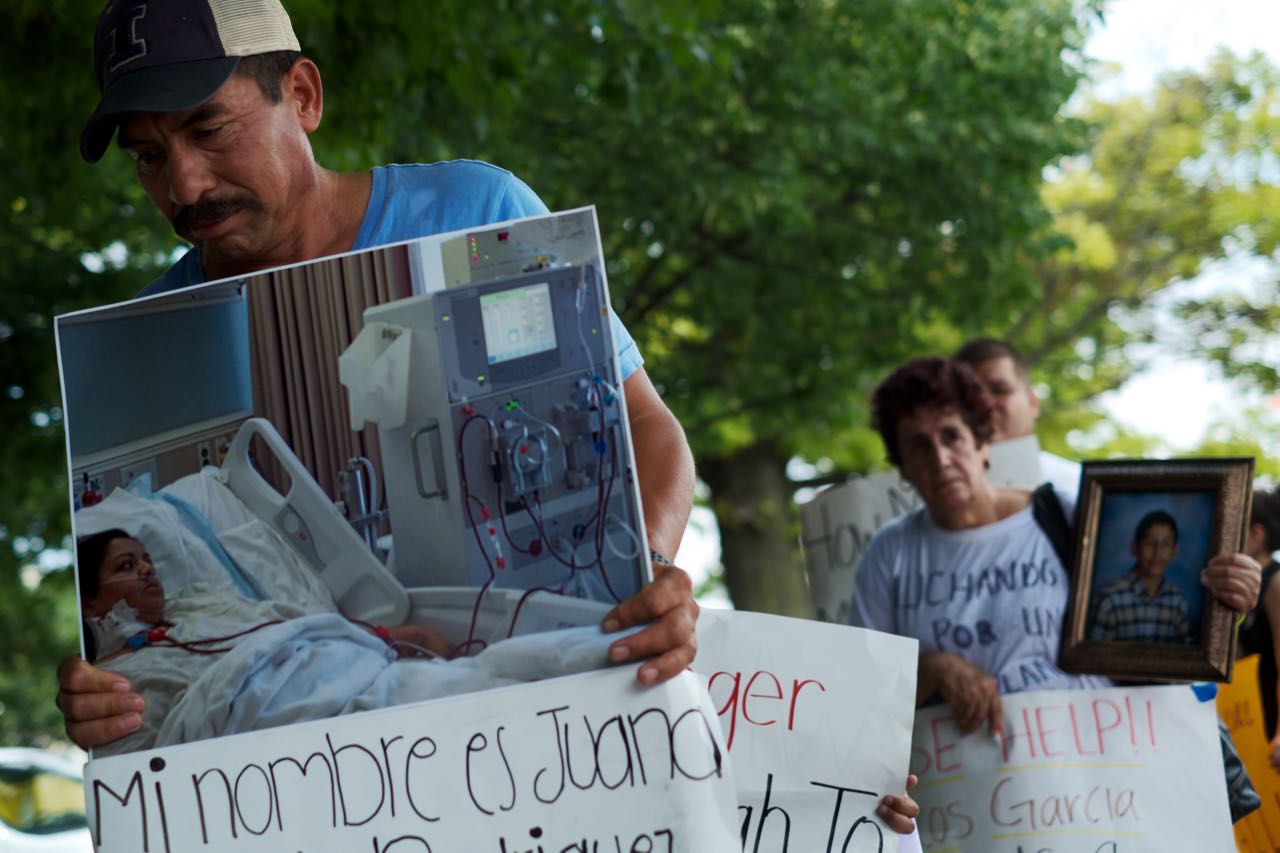 I
Mi nombre es Juana
Rodriguez
ger
gh To
How
LUCHANDO
POR UN
SE HELP!!
os Garcia